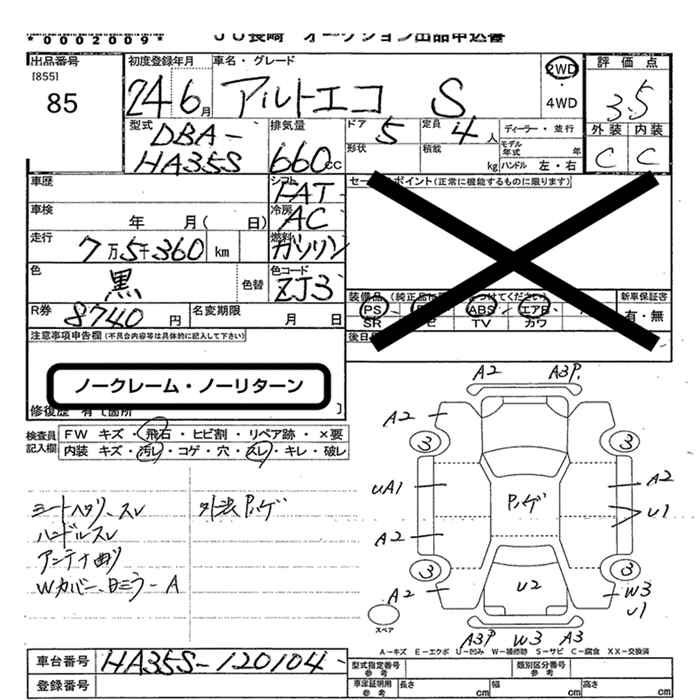 *0002009*
JU長崎 オークション出品申込書
出品番号
[855]
85
初度登録年月
24 6月
車名・グレード
アルトエコ S
2WD
・
4WD
評価点
3.5
外装 内装
C C
型式
DBA-
HA35S
排気量
660cc
ドア 5
定員 4人
ディーラー・並行
形状
積載 kg
モデル年式 年
ハンドル 左・右
車歴
シフト
FAT
セールスポイント(正常に機能するものに限ります)
車検 年 月( 日)
冷房
AC
走行
7万5千360 km
燃料
ガソリン
色
黒
色替
色コード
ZJ3
装備品
新車保証書
PS ABS エアB
有・無
SR TV カワ
R券
8740円
名変期限
月 日
注意事項申告欄(不具合内容等は具体的に記入して下さい)
ノークレーム・ノーリターン
修復歴 有(箇所 )
検査員
記入欄
FW キズ・飛石・ヒビ割・リペア跡・×要
内装 キズ・汚レ・コゲ・穴・スレ・キレ・破レ
シートヘタリ、スレ
ハンドルスレ
アンテナ曲り
Wカバー、ミラーA
外法ハゲ
A2 A3P.
A2
3 3
UA1
ハゲ
A2
U1
A2
3 3
A2
U2
W3
U1
スペア
A3P W3 A3
A-キズ E-エクボ U-凹み W-補修跡 S-サビ C-腐食 XX-交換済
車台番号
HA35S-120104-
登録番号
型式指定番号
参考
類別区分番号
参考
車庫証明用
参考
長さ cm
幅 cm
高さ cm